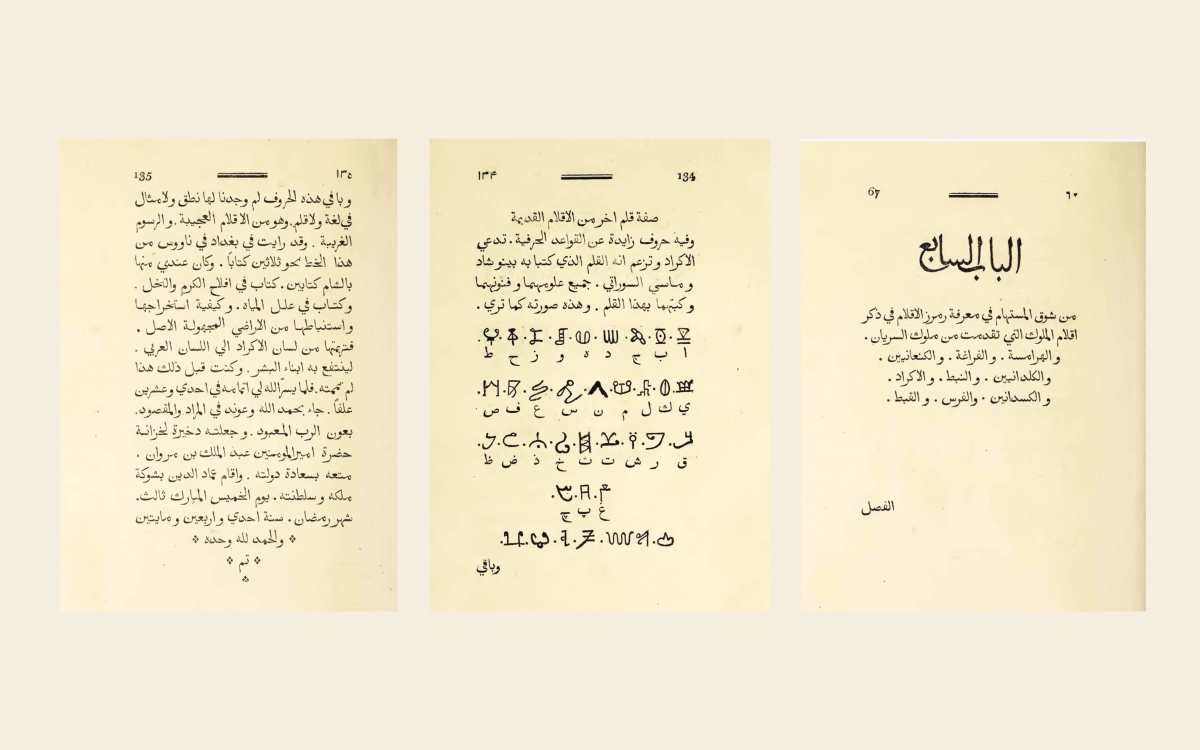 67 ٦٠
الباب السابع
من شوق المستهام في معرفة رموز الاقلام في ذكر
اقلام الملوك التي تقدمت من ملوك السريان .
والهرامسة . والفراغة . والكنعانيين .
والكلدانيين . والنبط . والاكراد .
والكسدانين . والفرس . والقبط .
الفصل
١٣۴ 134
صفة قلم اخر من الاقلام القديمة
وفيه حروف زايدة عن القواعد الحرفية . تدعي
الاكراد وتزعم انه القلم الذي كتبا به بينوشاد
وماسي السوراتي . جميع علومهما وفنونهما
وكتبهما بهذا القلم . وهذه صورته كما تري .
ا ب ج د ه و ز ح ط
ي ك ل م ن س ع ف ص
ق ر ش ت ث خ ذ ض ظ
غ پ چ
وباقي
135 ١٣٥
وباقي هذه الحروف لم وجدنا لها نطق ولا مثال
في لغة ولا قلم . وهو من الاقلام العجيبة . والرسوم
الغريبة . وقد رايت في بغداد في ناووس من
هذا الخط نحو ثلاثين كتابا . وكان عندي منها
بالشام كتابين . كتاب في افلاح الكرم والنخل .
وكتاب في علل المياه . وكيفية استخراجها
واستنباطها من الاراضي المجهولة الاصل .
فترجمتها من لسان الاكراد الي اللسان العربي .
لينتفع به ابناء البشر . وكنت قبل ذلك هذا
لم تممته . فلما يسر الله لي اتمامه في احدي وعشرين
علفا . جاء بحمد الله وعونه في المراد والمقصود .
بعون الرب المعبود . وجعلته دخيرة لخزانة
حضرة امير المومنين عبد الملك بن مروان .
متعه بسعادة دولته . واقام عماد الدين بشوكة
ملكه وسلطنته . يوم الخميس المبارك ثالث .
شهر رمضان . سنة احدي واربعين ومايتين
والحمد لله وحده
تم